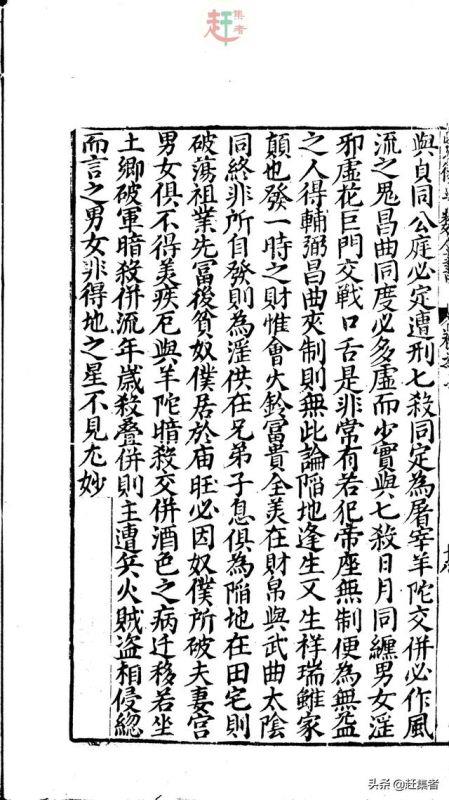 赶集者
與貞同公庭必定遭刑七殺同定為屠宰羊陀交併必作風
流之鬼昌曲同度必多虛而少實與七殺日月同纏男女淫
邪虛花巨門交戰口舌是非常有若犯帝座無制便為無益
之人得輔弼昌曲夾制則無此論陥地逢生又生祥瑞雖家
顛也發一時之財惟會火鈴冨貴全美在財帛與武曲太陰
同終非所自發則為淫佚在兄弟子息俱為陥地在田宅則
破蕩祖業先冨後貧奴僕居於庙旺必因奴僕所破夫妻宮
男女俱不得美疾厄與羊陀暗殺交併酒色之病迁移若坐
土鄉破軍暗殺併流年歲殺疊併則主遭兵火賊盗相侵緫
而言之男女非得地之星不見尤妙
头条@赶集者